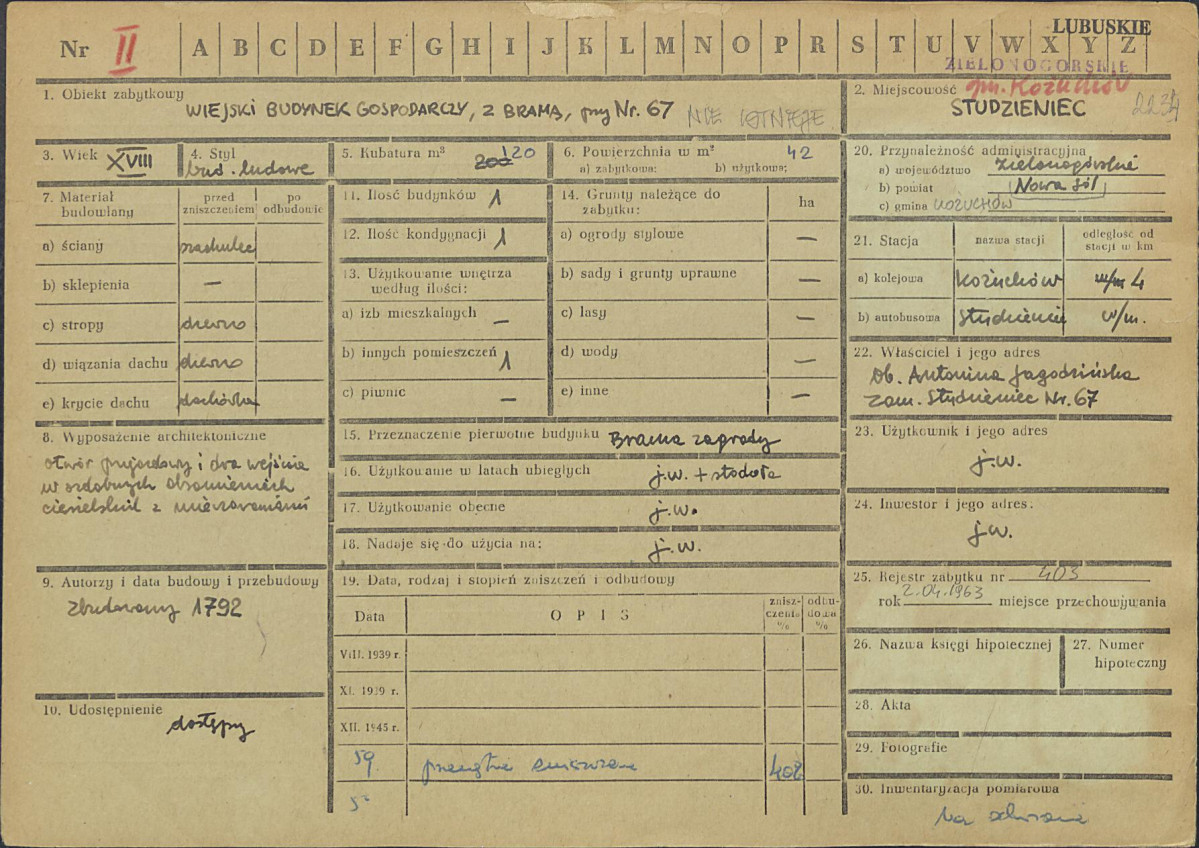 Nr II A B C D E F G H I J K L M N O P R S T U V W X Y Z
LUBUSKIE
ZIELONOGÓRSKIE
gm. Kożuchów
1. Obiekt zabytkowy
WIEJSKI BUDYNEK GOSPODARCZY, Z BRAMĄ, przy Nr. 67 NIE ISTNIEJE
2. Miejscowość
STUDZIENIEC
3. Wiek XVIII
4. Styl
bud. ludowe
5. Kubatura m³ 200 120
6. Powierzchnia w m² 42
a) zabytkowa: b) użytkowa:
7. Materiał budowlany
przed zniszczeniem
po odbudowie
a) ściany
b) sklepienia —
c) stropy drewno
d) wiązania dachu drewno
e) krycie dachu dachówka
8. Wyposażenie architektoniczne
otwór przejazdowy i dwa wejścia
w ozdobnych obramieniach
ciesielskich z
9. Autorzy i data budowy i przebudowy
zbudowany 1792
10. Udostępnienie
dostępny
11. Ilość budynków 1
12. Ilość kondygnacji 1
13. Użytkowanie wnętrza
według ilości:
a) izb mieszkalnych —
b) innych pomieszczeń 1
c) piwnic —
14. Grunty należące do
zabytku: ha
a) ogrody stylowe —
b) sady i grunty uprawne —
c) lasy —
d) wody —
e) inne —
15. Przeznaczenie pierwotne budynku Brama zagrody
16. Użytkowanie w latach ubiegłych j.w. + stodoła
17. Użytkowanie obecne j.w.
18. Nadaje się do użycia na: j.w.
19. Data, rodzaj i stopień zniszczeń i odbudowy
Data
OPIS
znisz-
czenia
%
odbu-
dowa
%
VIII. 1939 r.
XI. 1939 r.
XII. 1945 r.
59. 40%
20. Przynależność administracyjna
a) województwo Zielonogórskie
b) powiat Nowa Sól
c) gmina KOŻUCHÓW
21. Stacja
nazwa stacji
odległość od
stacji w km
a) kolejowa Kożuchów w/m 4
b) autobusowa Studzieniec w/m.
22. Właściciel i jego adres
Ob. Antonina Jagodzińska
zam. Studzieniec Nr. 67
23. Użytkownik i jego adres
j.w.
24. Inwestor i jego adres:
j.w.
25. Rejestr zabytku nr 403
rok 2.04.1963 miejsce przechowywania
26. Nazwa księgi hipotecznej
27. Numer
hipoteczny
28. Akta
29. Fotografie
30. Inwentaryzacja pomiarowa